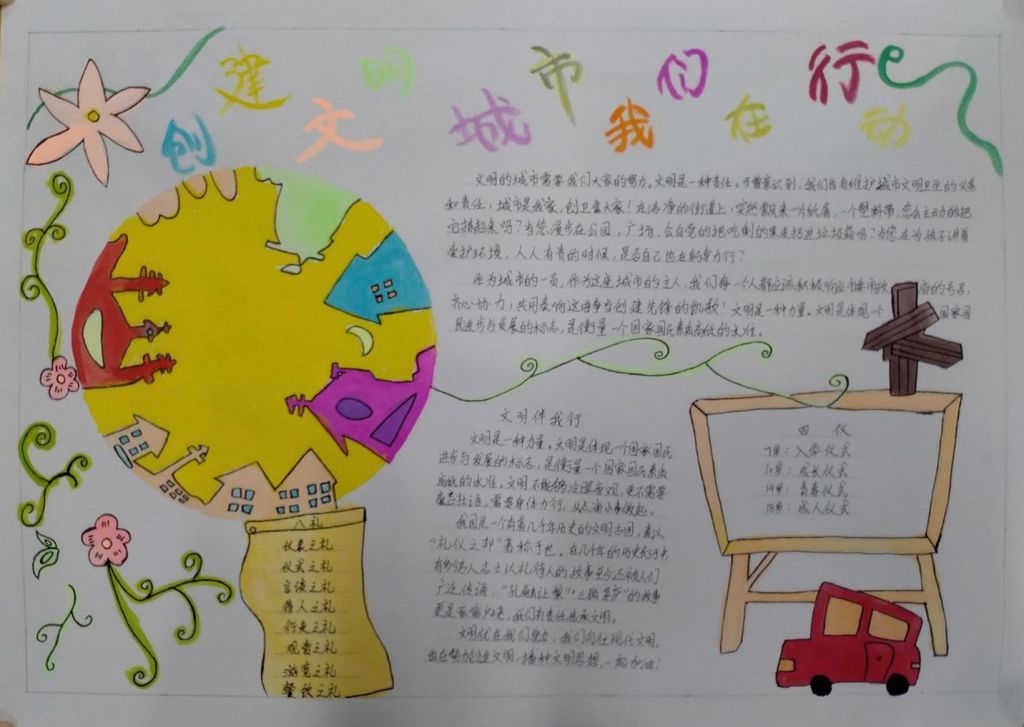 创建文明城市我们在行动
文明的城市需要我们大家的努力。文明是一种责任。可曾意识到，我们自身维护城市文明卫生的义务
和责任：城市是我家，创卫靠大家！在洁净的街道上，突然飘来一片纸屑，一个塑料带，您会主动的把
它捡起来吗？当您漫步在公园，广场，会自觉的把吃剩的果皮扔进垃圾箱吗？当您在为孩子讲着
爱护环境，人人有责的时候，是否自己也在躬身力行？
作为城市的一员，作为这座城市的主人，我们每一个人都应该积极响应市委市政府的号召，
齐心协力，共同奏响这曲争当创建先锋的凯歌！文明是一种力量。文明是体现一个国家国
民进步与发展的标志，是衡量一个国家国民素质高低的水准。
文明伴我行
文明是一种力量。文明是体现一个国家国民
进步与发展的标志，是衡量一个国家国民素质
高低的水准。文明不能够冷漠旁观，更不需要
豪言壮语，需要身体力行，从点滴小事做起。
我国是一个有着几千年历史的文明古国，素以
“礼仪之邦”著称于世。在几千年的历史长河中
有多达人志士以礼待人的故事至今还被人们
广泛传诵，“孔融让梨”“三顾茅庐”的故事
更是家喻户晓，我们有责任传承文明。
文明就在我们身边，我们向往现代文明，
也在努力创造文明，播种文明思想，一起加油！
四 仪
7岁：入学仪式
10岁：成长仪式
14岁：青春仪式
18岁：成人仪式
八礼
仪表之礼
仪式之礼
言谈之礼
待人之礼
行走之礼
观赏之礼
游览之礼
餐饮之礼